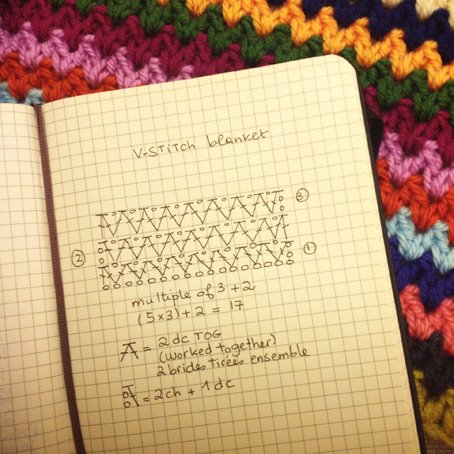 V-STITCH blanket
③
②
①
multiple of 3 + 2
(5x3) + 2 = 17
= 2 dc TOG
(worked together)
2 brides tirées ensemble
= 2ch + 1dc